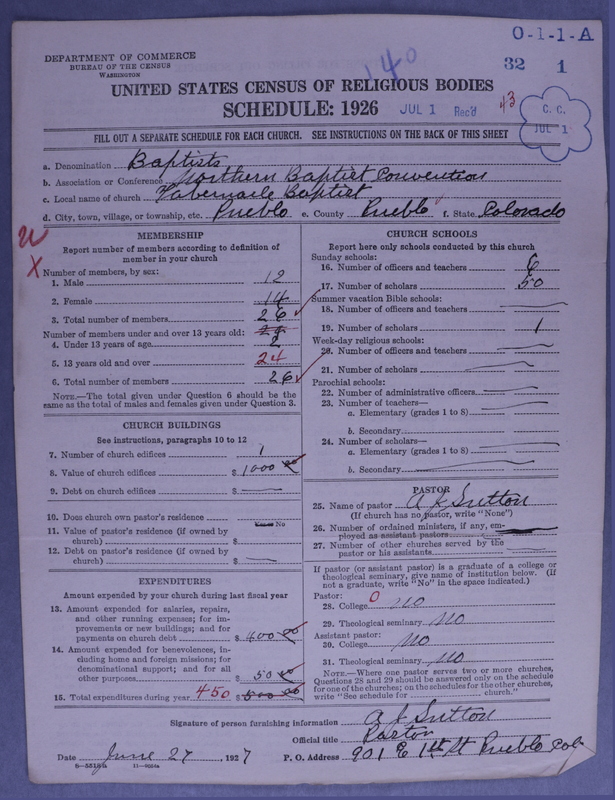 O-1-1-A
DEPARTMENT OF COMMERCE
BUREAU OF THE CENSUS
WASHINGTON
140
32 1
UNITED STATES CENSUS OF RELIGIOUS BODIES
SCHEDULE: 1926 JUL 1 Rec'd 43
C. C.
JUL 1
FILL OUT A SEPARATE SCHEDULE FOR EACH CHURCH. SEE INSTRUCTIONS ON THE BACK OF THIS SHEET
a. Denomination Baptists
b. Association or Conference Northern Baptist Convention
c. Local name of church Tabernacle Baptist
d. City, town, village, or township, etc. Pueblo e. County Pueblo f. State Colorado
MEMBERSHIP
Report number of members according to definition of
member in your church
Number of members, by sex:
1. Male 12
2. Female 14
3. Total number of members 26
Number of members under and over 13 years old:
4. Under 13 years of age 2
5. 13 years old and over 24
6. Total number of members 26
NOTE.—The total given under Question 6 should be the
same as the total of males and females given under Question 3.
CHURCH BUILDINGS
See instructions, paragraphs 10 to 12
7. Number of church edifices 1
8. Value of church edifices $ 1000 00
9. Debt on church edifices $
10. Does church own pastor's residence No
11. Value of pastor's residence (if owned by
church) $
12. Debt on pastor's residence (if owned by
church) $
EXPENDITURES
Amount expended by your church during last fiscal year
13. Amount expended for salaries, repairs,
and other running expenses; for im-
provements or new buildings; and for
payments on church debt $ 400 00
14. Amount expended for benevolences, in-
cluding home and foreign missions; for
denominational support; and for all
other purposes $ 50 00
15. Total expenditures during year 450 $
CHURCH SCHOOLS
Report here only schools conducted by this church
Sunday schools:
16. Number of officers and teachers 6
17. Number of scholars 50
Summer vacation Bible schools:
18. Number of officers and teachers
19. Number of scholars 1
Week-day religious schools:
20. Number of officers and teachers
21. Number of scholars
Parochial schools:
22. Number of administrative officers
23. Number of teachers—
a. Elementary (grades 1 to 8)
b. Secondary
24. Number of scholars—
a. Elementary (grades 1 to 8)
b. Secondary
PASTOR
25. Name of pastor A J Sutton
(If church has no pastor, write "None")
26. Number of ordained ministers, if any, em-
ployed as assistant pastors
27. Number of other churches served by the
pastor or his assistants
If pastor (or assistant pastor) is a graduate of a college or
theological seminary, give name of institution below. (If
not a graduate, write "No" in the space indicated.)
Pastor:
28. College 0 no
29. Theological seminary No
Assistant pastor:
30. College No
31. Theological seminary No
NOTE.—Where one pastor serves two or more churches,
Questions 28 and 29 should be answered only on the schedule
for one of the churches; on the schedules for the other churches,
write "See schedule for church."
Signature of person furnishing information A J Sutton
Official title Pastor
Date June 27, 1927 P. O. Address 901 E 1st St Pueblo Colo